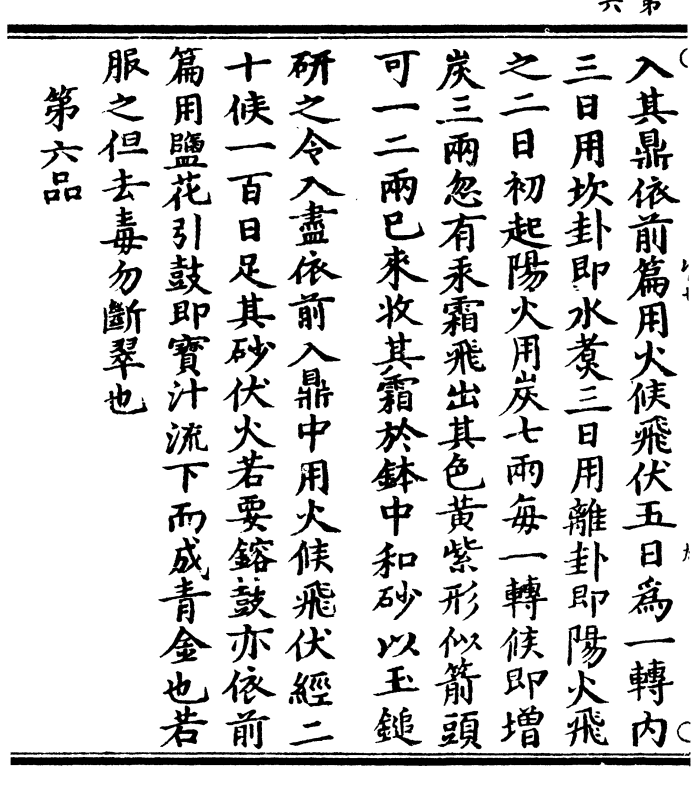 第六
入其鼎依前篇用火候飛伏五日為一轉内
三日用坎卦即水煑三日用離卦即陽火飛
之二日初起陽火用炭七兩每一轉候即增
炭三兩忽有汞霜飛出其色黃紫形似箭頭
可一二兩已來收其霜於鉢中和砂以玉鎚
研之令入盡依前入鼎中用火候飛伏經二
十候一百日足其砂伏火若要鎔鼓亦依前
篇用鹽花引鼓即寶汁流下而成青金也若
服之但去毒勿斷翠也
第六品